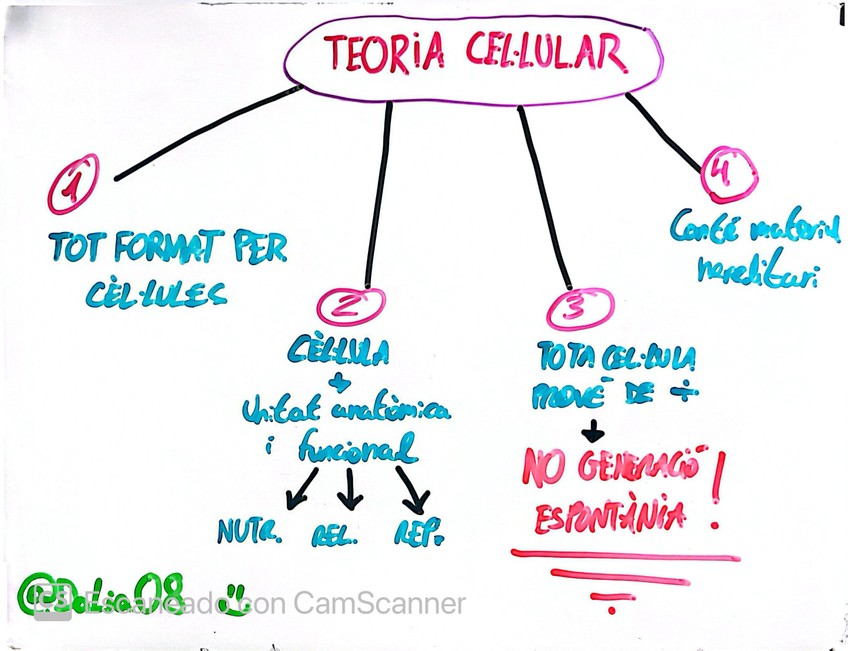 TEORIA CEL·LULAR
1
TOT FORMAT PER
CÈL·LULES
2
CÈL·LULA
↓
Unitat anatòmica
i funcional
NUTR. REL. REP.
3
TOTA CEL·LULA
PROVÉ DE ÷
↓
NO GENERACIÓ
ESPONTÀNIA!
4
Conté material
hereditari
@Dalia08
CS Escaneado con CamScanner